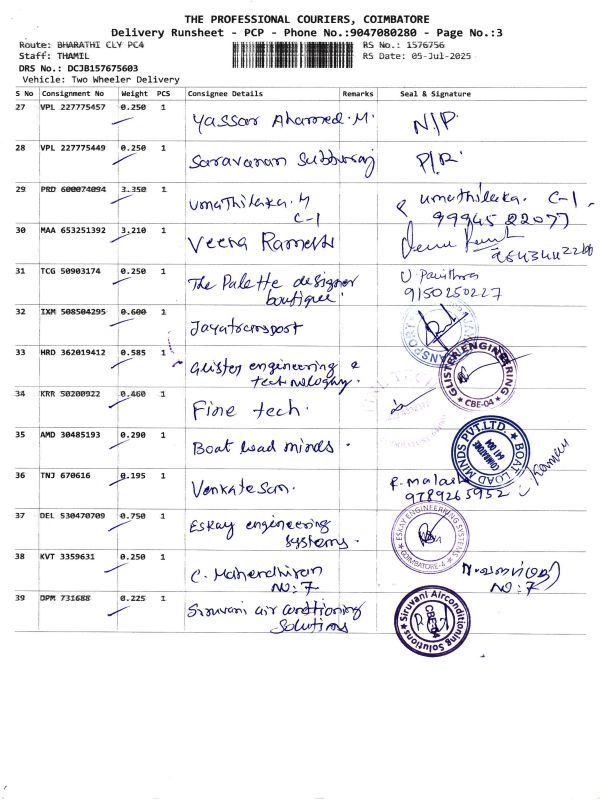 THE PROFESSIONAL COURIERS, COIMBATORE
Delivery Runsheet - PCP - Phone No.:9047080280 - Page No.:3
Route: BHARATHI CLY PC4 RS No.: 1576756
Staff: THAMIL RS Date: 05-Jul-2025
DRS No.: DCJB157675603
Vehicle: Two Wheeler Delivery
S No Consignment No Weight PCS Consignee Details Remarks Seal & Signature
27 VPL 227775457 0.250 1 Yassar Ahamed.M. N/P.
28 VPL 227775449 0.250 1 Saravanan Subburaj P/R.
29 PRD 600074094 3.350 1 Umathilaka.M umathilaka. C-1.
C-1 99945 22077
30 MAA 653251392 3.210 1 Veera Ramesh
31 TCG 50903174 0.250 1 The Palette designer U. Pavithra
boutique. 9150250227
32 IXM 508504295 0.600 1 Jayatransport
33 HRD 362019412 0.585 1 Glister engineering & GLISTER ENGINEERING
technology. CBE-04
34 KRR 50200922 0.460 1 Fine tech.
35 AMD 30485193 0.290 1 Boat load minds. BOAT LOAD MINDS PVT.LTD.
COIMBATORE
641 004
36 TNJ 670616 0.195 1 Venkatesan. R. Malash
9789265952
37 DEL 530470709 0.750 1 Eskay engineering ESKAY ENGINEERING SYSTEMS
systems. COIMBATORE-4
38 KVT 3359631 0.250 1 C. Mahendhiran
NO: 7 NO: 7
39 DPM 731688 0.225 1 Siruvani air conditioning Siruvani Airconditioning Solutions
Solutions CBE